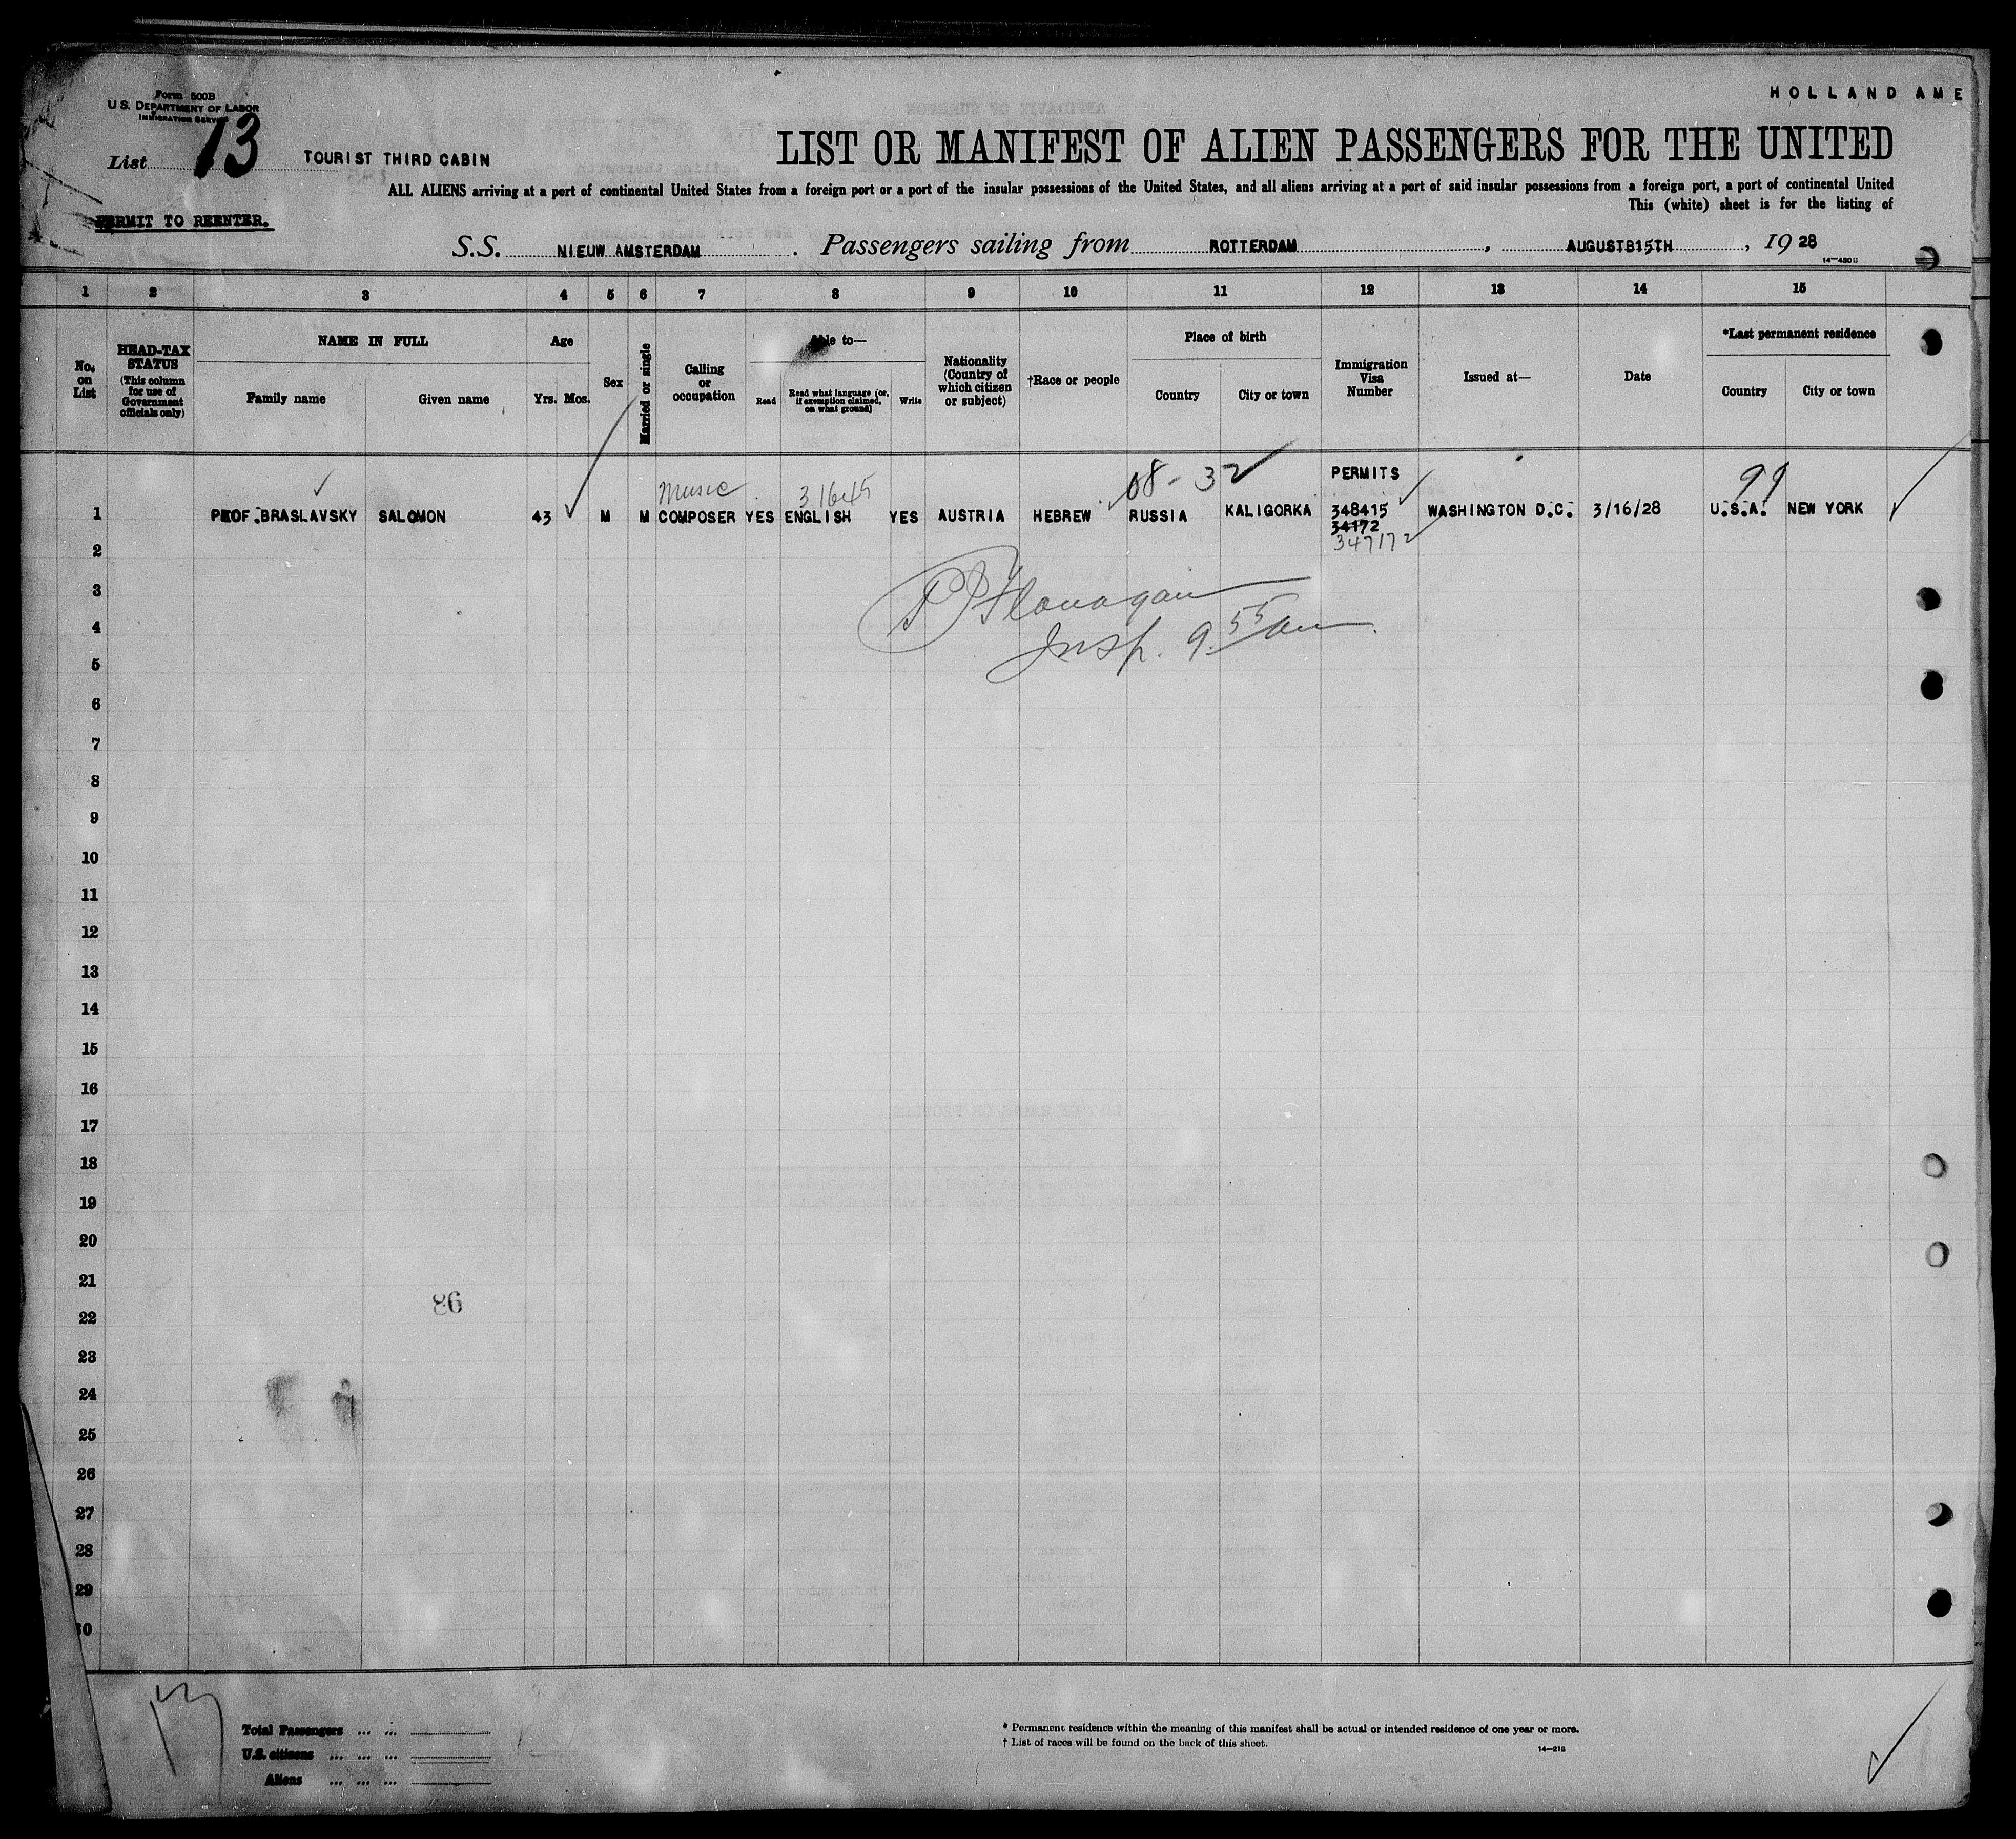 Form 500B
U. S. DEPARTMENT OF LABOR
IMMIGRATION SERVICE
HOLLAND AME
List 13 TOURIST THIRD CABIN
LIST OR MANIFEST OF ALIEN PASSENGERS FOR THE UNITED
ALL ALIENS arriving at a port of continental United States from a foreign port or a port of the insular possessions of the United States, and all aliens arriving at a port of said insular possessions from a foreign port, a port of continental United
This (white) sheet is for the listing of
PERMIT TO REENTER.
S.S. NIEUW AMSTERDAM . Passengers sailing from ROTTERDAM , AUGUST 15TH , 19 28
1 2 3 4 5 6 7 8 9 10 11 12 13 14 15
No. on List
HEAD-TAX STATUS (This column for use of Government officials only)
NAME IN FULL
Family name Given name
Age
Yrs. Mos.
Sex
Married or single
Calling or occupation
Able to—
Read
Read what language (or, if exemption claimed, on what ground)
Write
Nationality (Country of which citizen or subject)
†Race or people
Place of birth
Country City or town
Immigration Visa Number
Issued at—
Date
*Last permanent residence
Country City or town
Music 31645 08-32 PERMITS 99
1 PROF.BRASLAVSKY SALOMON 43 M M COMPOSER YES ENGLISH YES AUSTRIA HEBREW RUSSIA KALIGORKA 348415 WASHINGTON D.C. 3/16/28 U.S.A. NEW YORK
34172
347172
2
3
P J Flanagan
4
Insp. 9.55 am
5
6
7
8
9
10
11
12
13
14
15
16
17
18
19
20
21
22
93
23
24
25
26
27
28
29
30
13
Total Passengers ... ...
U.S. citizens ... ... ...
Aliens ... ... ...
* Permanent residence within the meaning of this manifest shall be actual or intended residence of one year or more.
† List of races will be found on the back of this sheet.
14—218